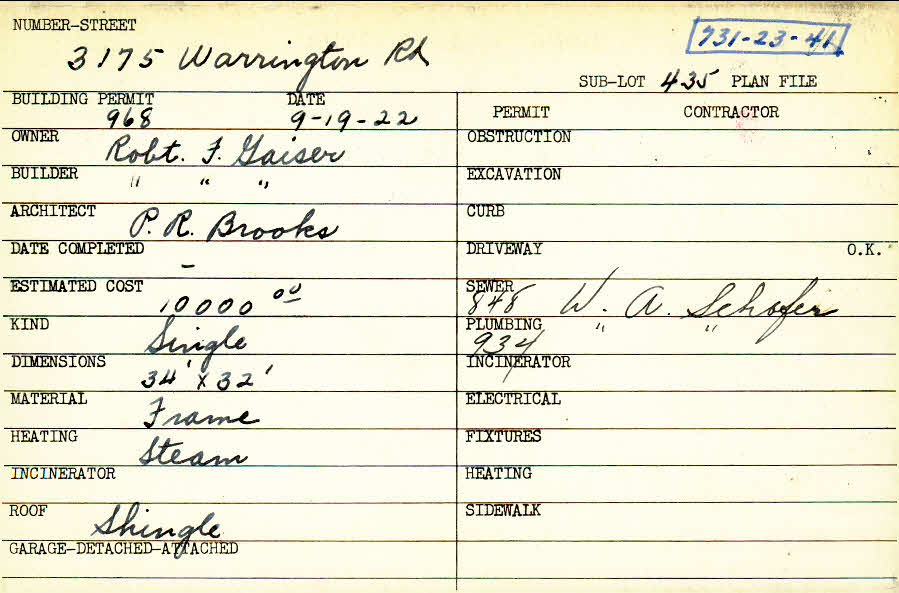 NUMBER-STREET
731-23-41
3175 Warrington Rd
SUB-LOT 435 PLAN FILE
BUILDING PERMIT DATE
968 9-19-22
PERMIT CONTRACTOR
OWNER
Robt. F. Gaiser
BUILDER
" " "
ARCHITECT
P. R. Brooks
DATE COMPLETED
-
ESTIMATED COST
10000 00
KIND
Single
DIMENSIONS
34' x 32'
MATERIAL
Frame
HEATING
Steam
INCINERATOR
ROOF
Shingle
GARAGE-DETACHED-ATTACHED
OBSTRUCTION
EXCAVATION
CURB
DRIVEWAY O.K.
SEWER
848 W. A. Schafer
PLUMBING " "
934
INCINERATOR
ELECTRICAL
FIXTURES
HEATING
SIDEWALK